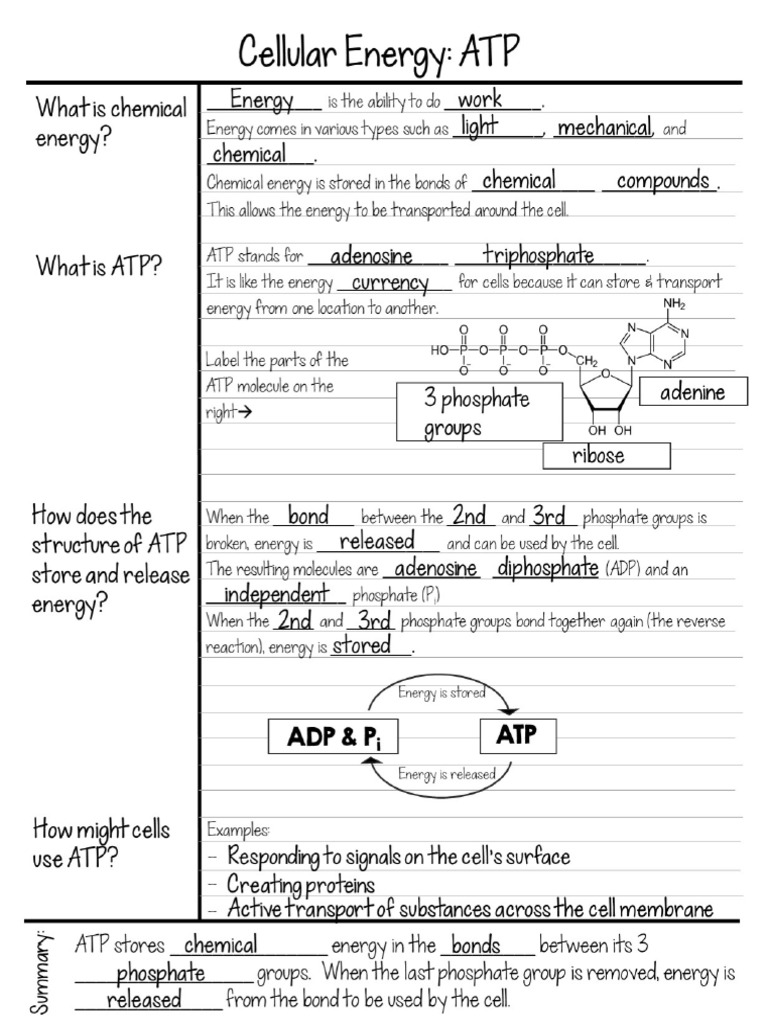 Cellular Energy: ATP
What is chemical
energy?
Energy is the ability to do work.
Energy comes in various types such as light, mechanical, and
chemical.
Chemical energy is stored in the bonds of chemical compounds.
This allows the energy to be transported around the cell.
What is ATP?
ATP stands for adenosine triphosphate.
It is like the energy currency for cells because it can store & transport
energy from one location to another.
Label the parts of the
ATP molecule on the
right→
NH2
N N
N N
O O O
HO-P-O-P-O-P-O
O- O- O-
CH2
O
OH OH
adenine
3 phosphate
groups
ribose
How does the
structure of ATP
store and release
energy?
When the bond between the 2nd and 3rd phosphate groups is
broken, energy is released and can be used by the cell.
The resulting molecules are adenosine diphosphate (ADP) and an
independent phosphate (Pi)
When the 2nd and 3rd phosphate groups bond together again (the reverse
reaction), energy is stored.
Energy is stored
ADP & Pi ATP
Energy is released
How might cells
use ATP?
Examples:
- Responding to signals on the cell's surface
- Creating proteins
- Active transport of substances across the cell membrane
Summary:
ATP stores chemical energy in the bonds between its 3
phosphate groups. When the last phosphate group is removed, energy is
released from the bond to be used by the cell.